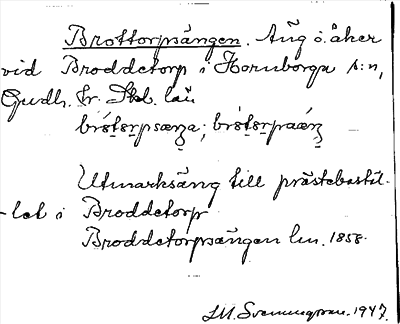 Brottorpsängen. Äng o. åker
vid Broddetorp i Hornborga s:n,
Gudh. hr. Skb. län
Utmarksäng till prästebostäl-
-let i Broddetorp
Broddetorpsängen lm. 1858.
1947.